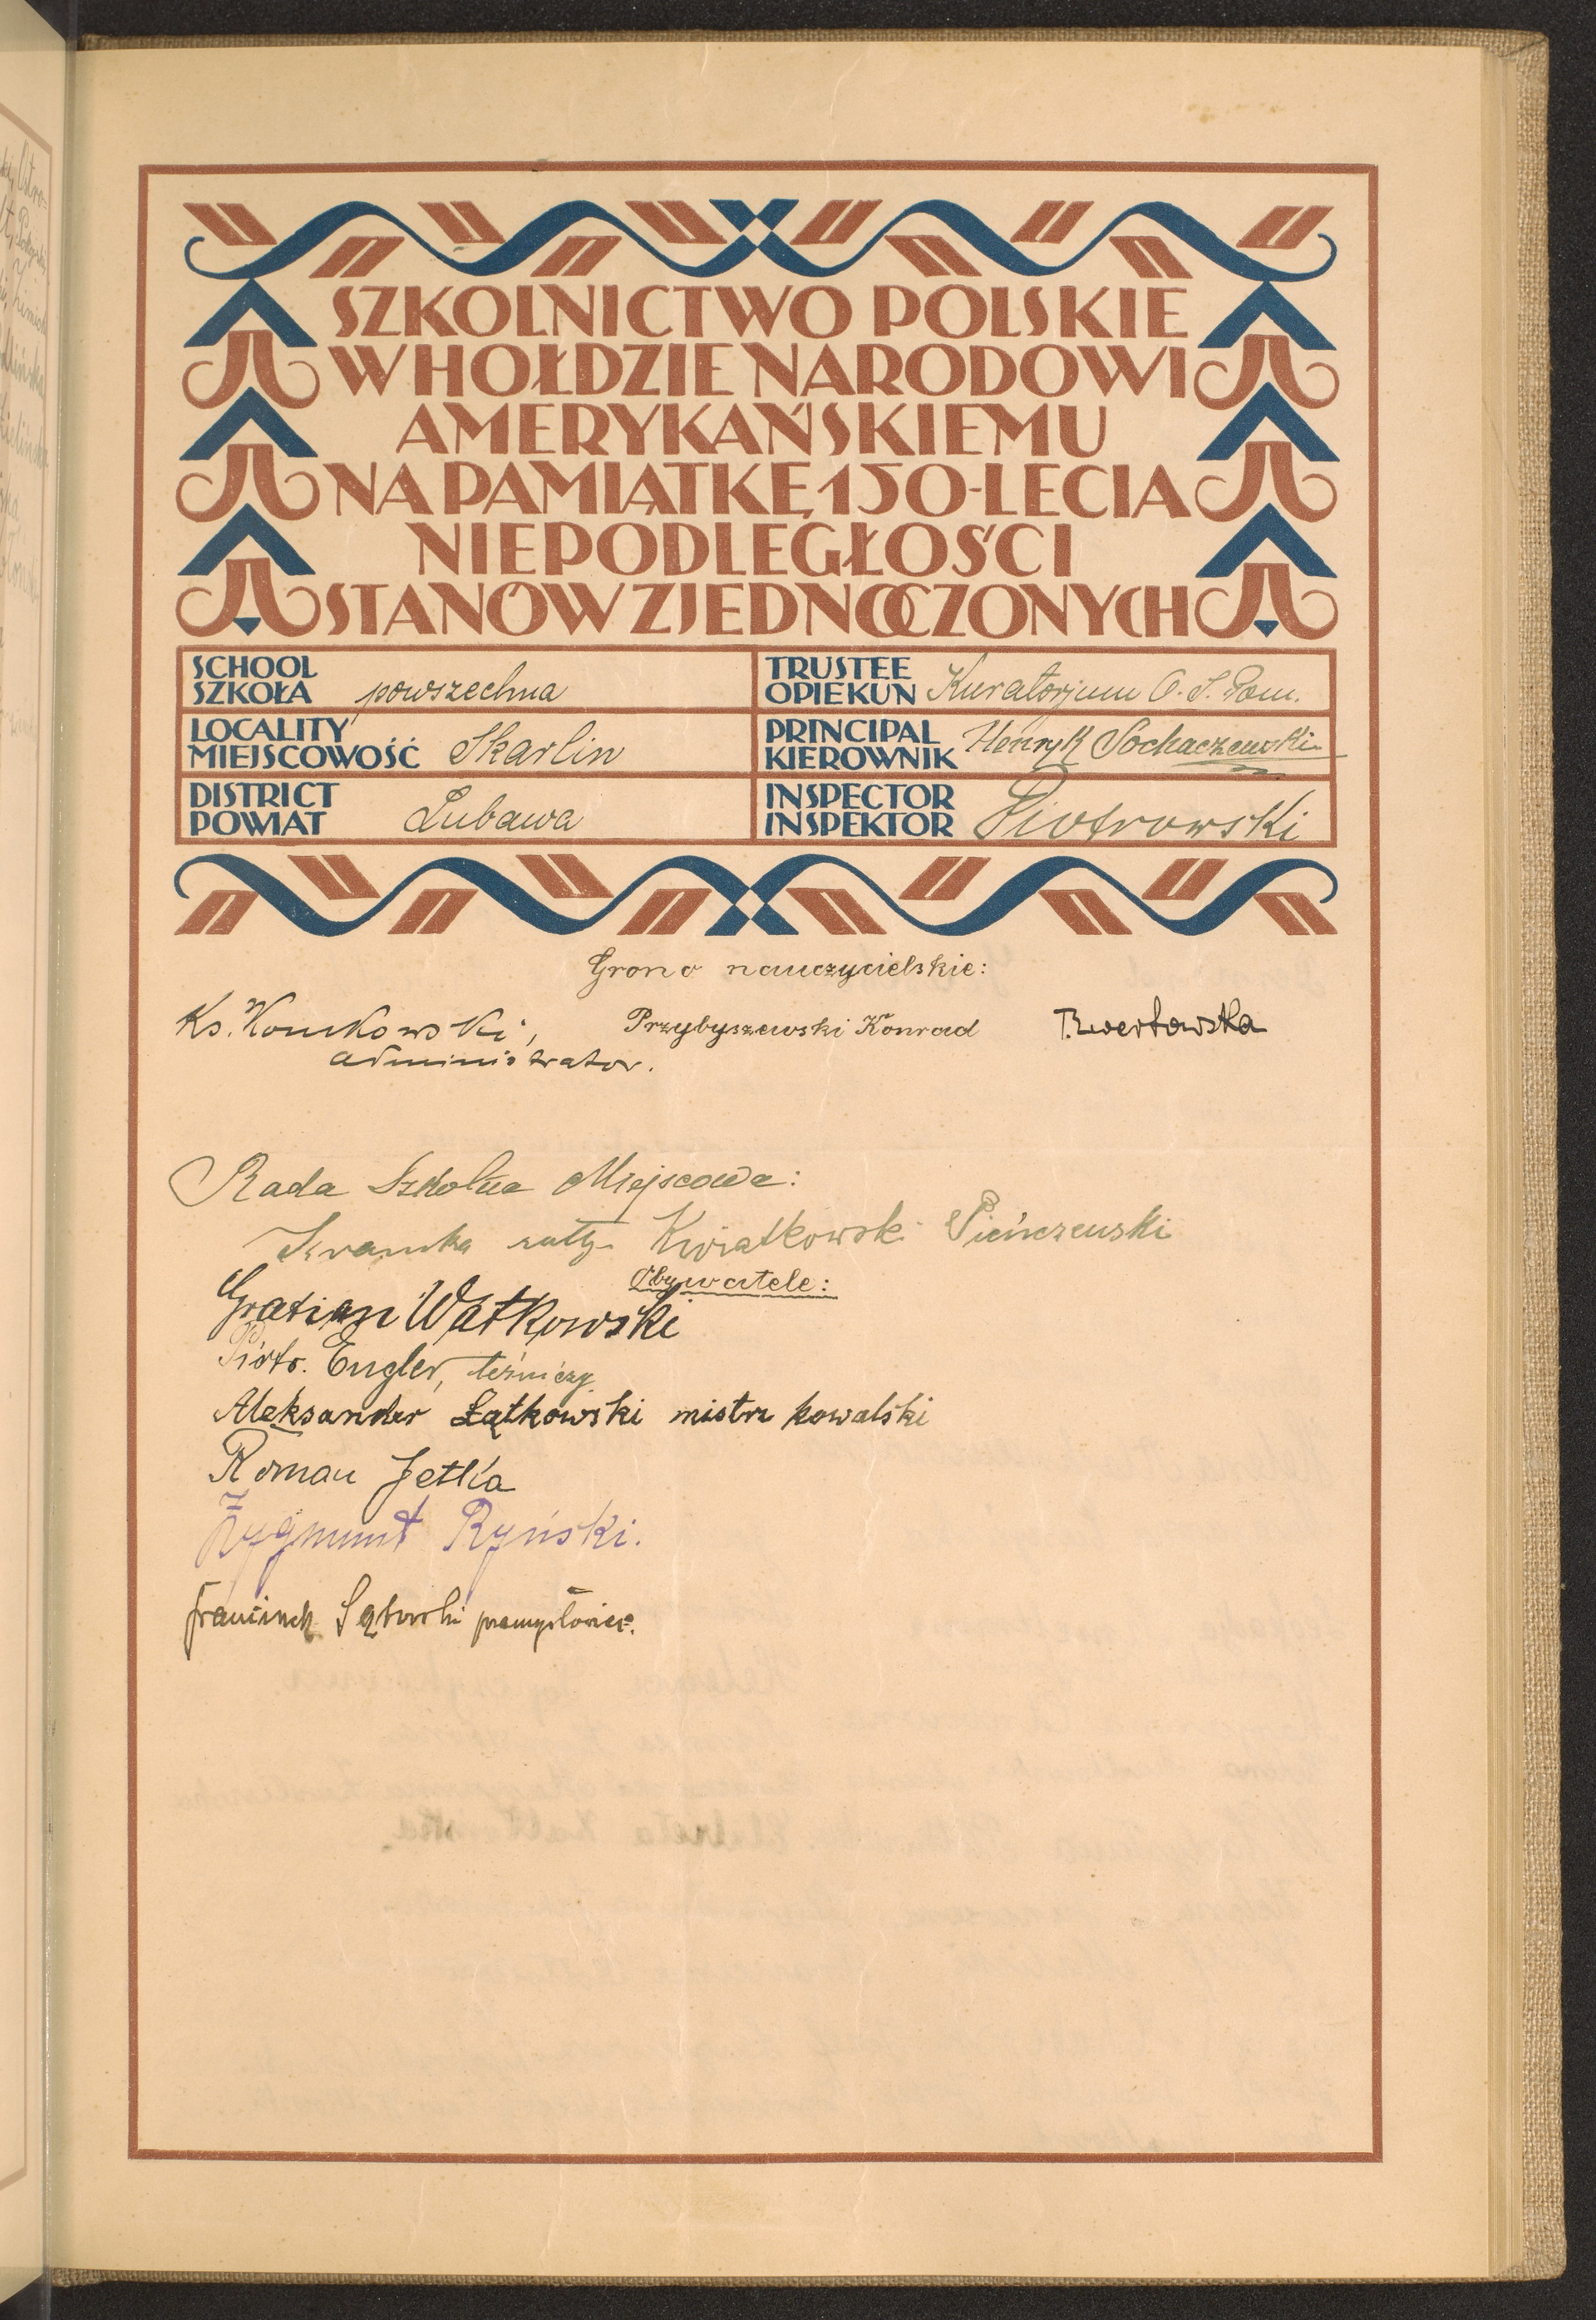 SZKOLNICTWO POLSKIE
W HOŁDZIE NARODOWI
AMERYKAŃSKIEMU
NA PAMIĄTKĘ 150-LECIA
NIEPODLEGŁOŚCI
STANÓW ZJEDNOCZONYCH
SCHOOL
SZKOŁA powszechna
TRUSTEE
OPIEKUN Kuratorjum O. S. Pom.
LOCALITY
MIEJSCOWOŚĆ Skarlin
PRINCIPAL
KIEROWNIK Henryk Sochaczewski
DISTRICT
POWIAT Lubawa
INSPECTOR
INSPEKTOR Piotrowski
Grono nauczycielskie:
Ks. Przybyszewski Konrad
administrator.
Rada Szkolna Miejscowa:
Kwiatkowski
Obywatele:
Gratian Watkowski
Piotr. Engler, leśniczy
Aleksander Łątkowski mistrz kowalski
Roman Jetka
Zygmunt Ryński.
przemysłowiec.